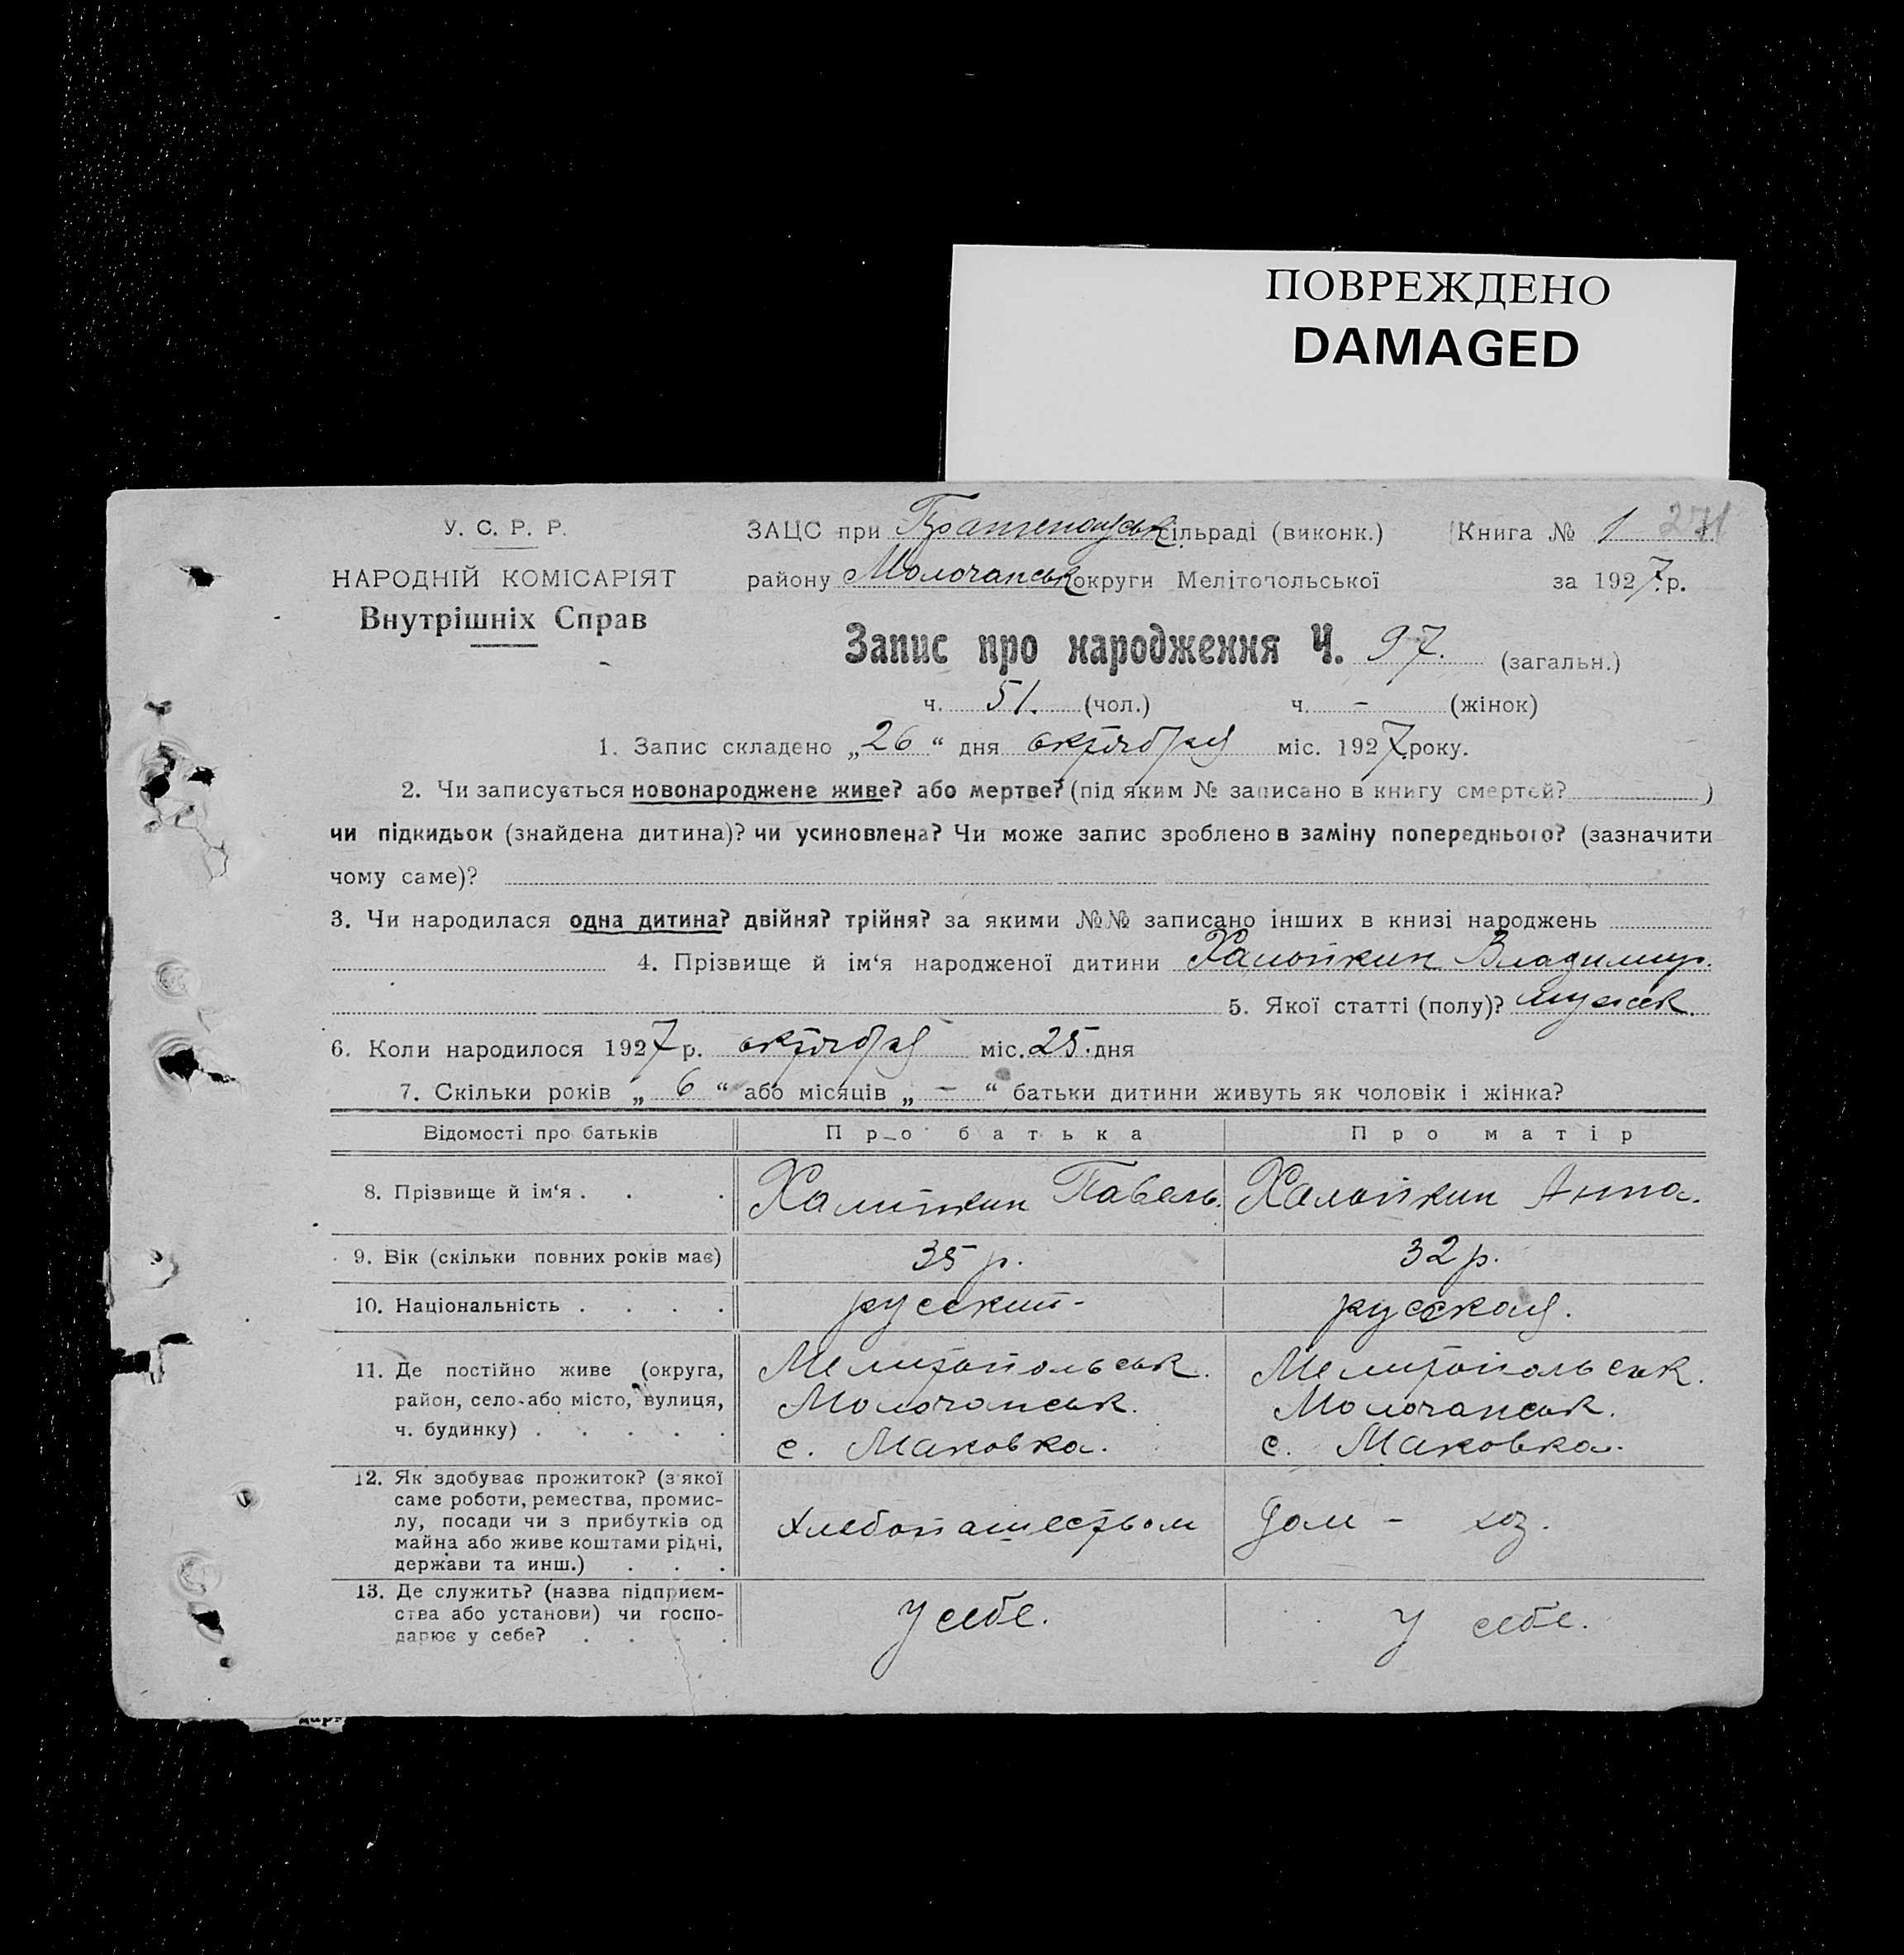 ПОВРЕЖДЕНО
DAMAGED
У. С. Р. Р.
НАРОДНІЙ КОМІСАРІЯТ
Внутрішніх Справ
ЗАЦС при сільраді (виконк.) Книга № 1 271
району Молочанськ округи Мелітопольської за 1927 р.
Запис про народження Ч. 97. (загальн.)
ч. 51. (чол.) ч. – (жінок)
1. Запис складено „26“ дня октября міс. 1927 року.
2. Чи записується новонароджене живе? або мертве? (під яким № записано в книгу смертей? )
чи підкидьок (знайдена дитина)? чи усиновлена? Чи може запис зроблено в заміну попереднього? (зазначити
чому саме)?
3. Чи народилася одна дитина? двійня? трійня? за якими №№ записано інших в книзі народжень
4. Прізвище й ім‘я народженої дитини Владимир.
5. Якої статті (полу)? мужск.
6. Коли народилося 1927 р. октября міс. 25. дня
7. Скільки років „6“ або місяців „–“ батьки дитини живуть як чоловік і жінка?
Відомості про батьків Про батька Про матір
8. Прізвище й ім‘я . . . Павель. Анна.
9. Вік (скільки повних років має) 35 р. 32 р.
10. Національність . . . . русский - русская.
11. Де постійно живе (округа, Мелитопольськ. Мелитопольськ.
район, село або місто, вулиця, Молочанськ. Молочанськ.
ч. будинку) . . . . . с. Маковка. с. Маковка.
12. Як здобуває прожиток? (з якої
саме роботи, ремества, промис-
лу, посади чи з прибутків од хлебопашеством дом - хоз.
майна або живе коштами рідні,
держави та инш.) . . .
13. Де служить? (назва підприєм-
ства або установи) чи госпо- у себе. у себе.
дарює у себе? . . . .